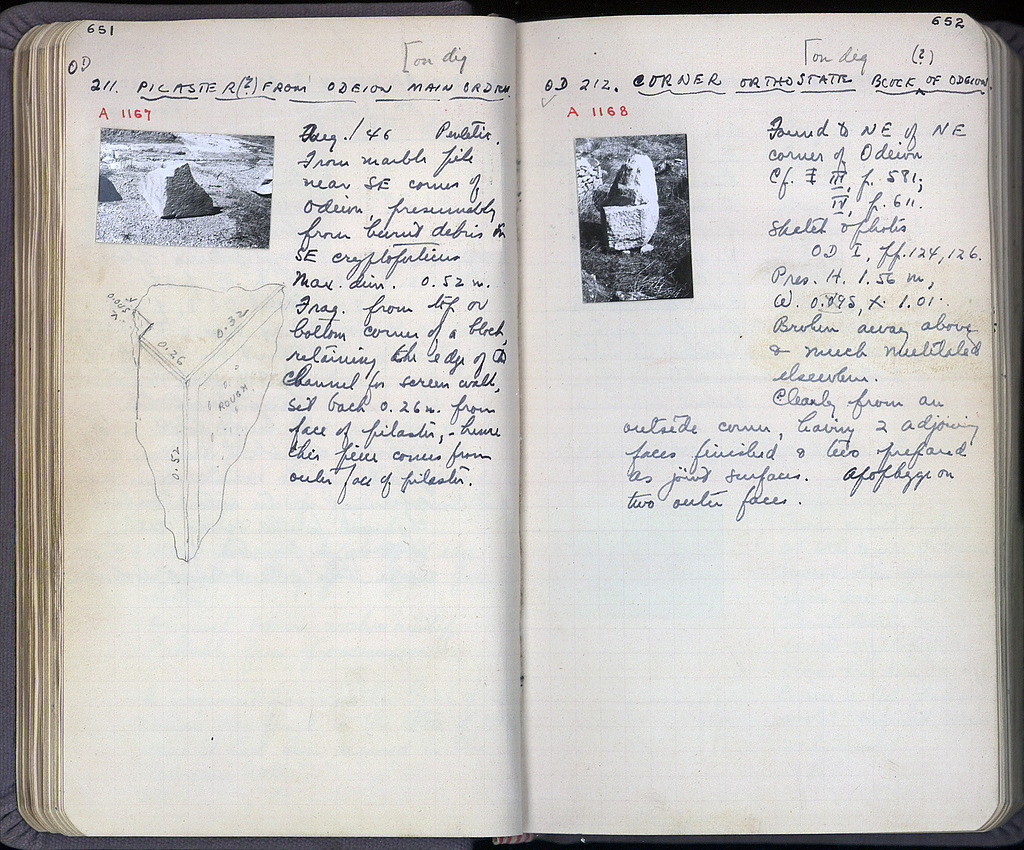 651
OD
[on dig
211. PILASTER(?) FROM ODEION MAIN ORDER.
A 1167
Aug. / 46 Pentelic.
From marble pile
near SE corner of
Odeion, presumably
from burnt debris in
SE cryptoporticus
Max. dim. 0.52 m.
Frag. from top or
bottom corner of a block,
retaining the edge of
channel for screen wall,
set back 0.26 m. from
face of pilaster, - hence
this piece comes from
outer face of pilaster.
0.065
0.26
0.32
ROUGH
0.52
652
[on dig (?)
OD 212. CORNER ORTHOSTATE BLOCK OF ODEION.
A 1168
Found to NE of NE
corner of Odeion
Cf. III, p. 581;
IV, p. 611.
Sketch & photos
OD I, pp. 124, 126.
Pres. H. 1.56 m,
W. 0.895, X. 1.01.
Broken away above
& much mutilated
elsewhere.
Clearly from an
outside corner, having 2 adjoining
faces finished & two prepared
as joint surfaces. Apophyge on
two outer faces.